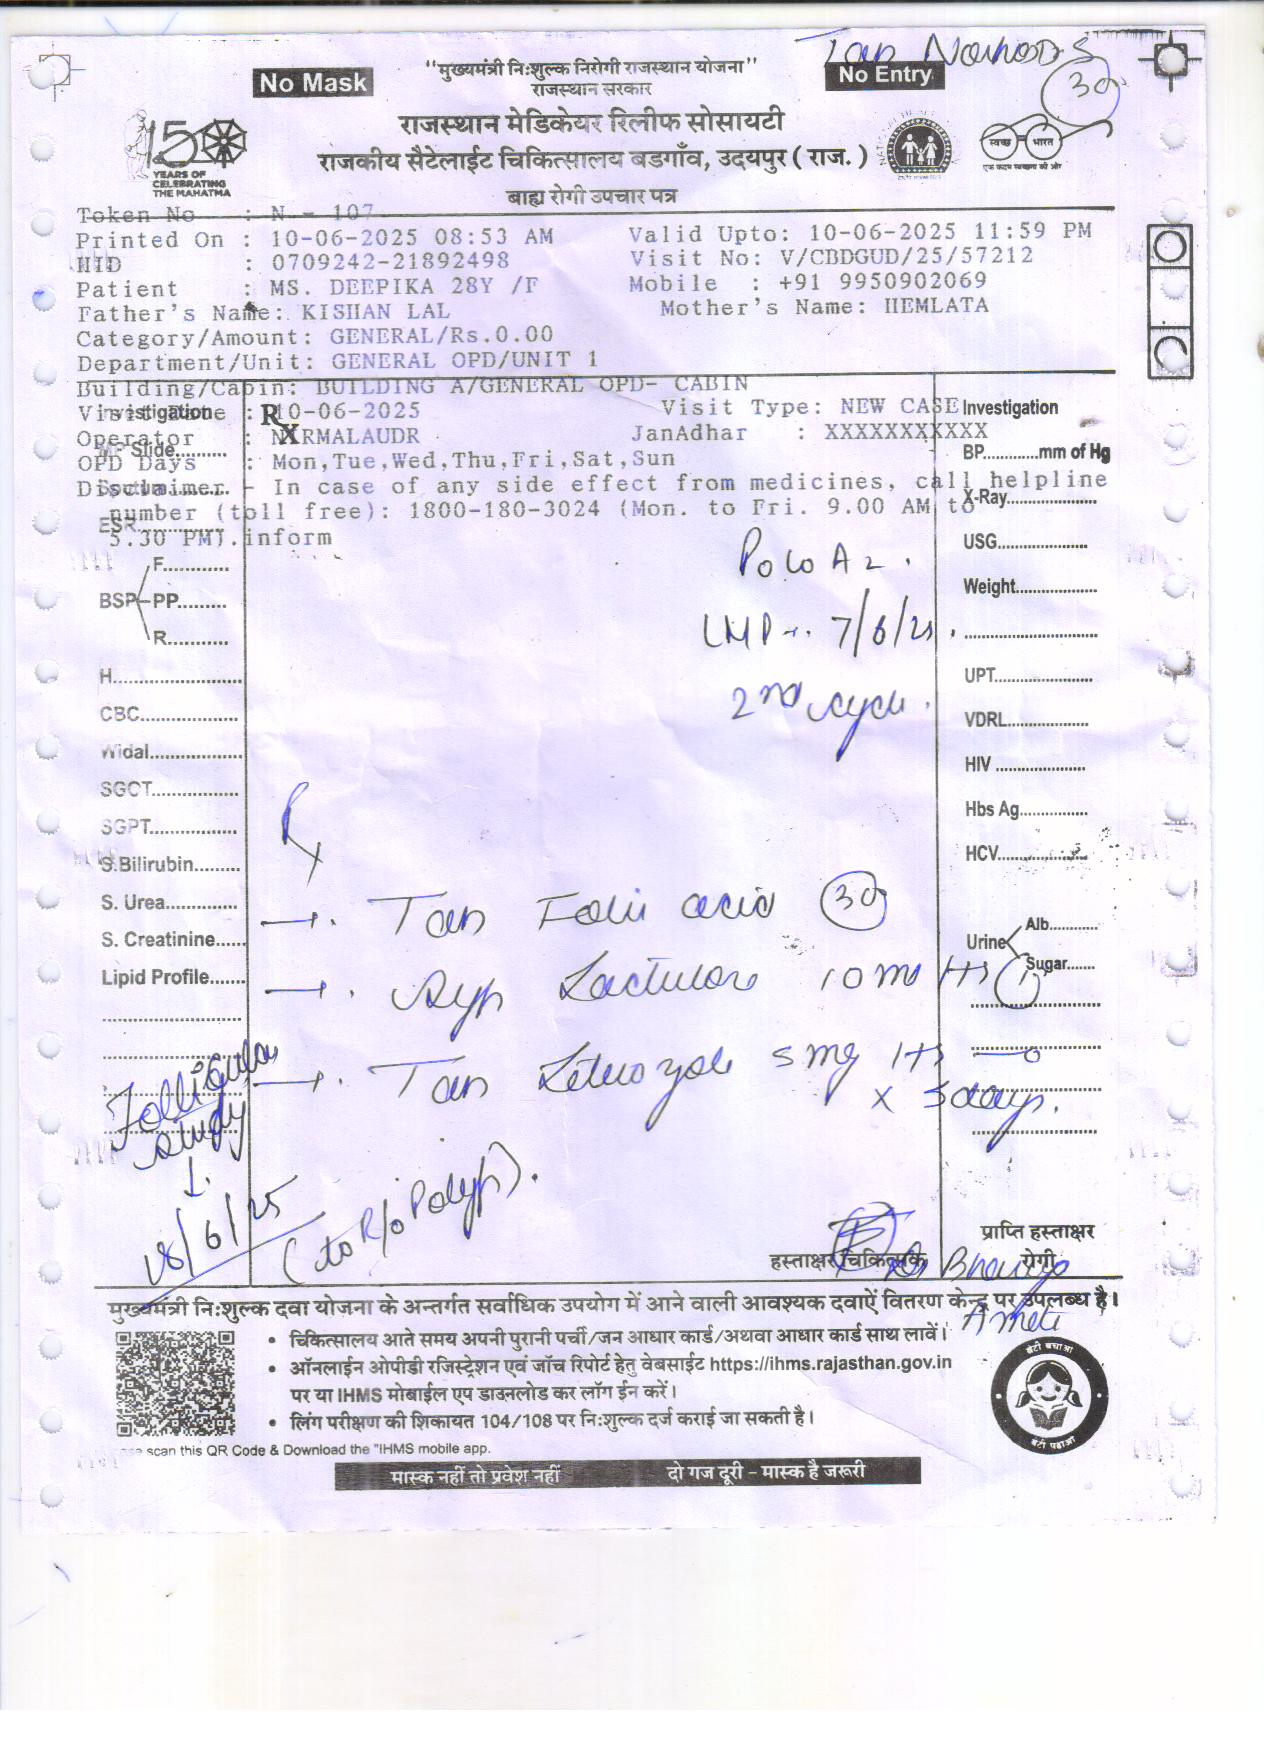 Tab
30
No Mask
"मुख्यमंत्री निःशुल्क निरोगी राजस्थान योजना"
No Entry
राजस्थान सरकार
राजस्थान मेडिकेयर रिलीफ सोसायटी
राजकीय सैटेलाईट चिकित्सालय बडगाँव, उदयपुर ( राज. )
150
YEARS OF
CELEBRATING
THE MAHATMA
स्वच्छ भारत
एक कदम स्वच्छता की ओर
बाह्य रोगी उपचार पत्र
Token No : N - 107
Printed On : 10-06-2025 08:53 AM Valid Upto: 10-06-2025 11:59 PM
HID : 0709242-21892498 Visit No: V/CBDGUD/25/57212
Patient : MS. DEEPIKA 28Y /F Mobile : +91 9950902069
Father's Name: KISHAN LAL Mother's Name: HEMLATA
Category/Amount: GENERAL/Rs.0.00
Department/Unit: GENERAL OPD/UNIT 1
Building/Cabin: BUILDING A/GENERAL OPD- CABIN
Visit Date : 10-06-2025 Visit Type: NEW CASE
Operator : NIRMALAUDR JanAdhar : XXXXXXXXXXX
OPD Days : Mon,Tue,Wed,Thu,Fri,Sat,Sun
Disclaimer - In case of any side effect from medicines, call helpline
number (toll free): 1800-180-3024 (Mon. to Fri. 9.00 AM to
5.30 PM).inform
Investigation
Rx
MP Slide..........
ESR
BSP F............
PP.........
R...........
H.......................
CBC..................
Widal.................
SGOT.................
SGPT................
S.Bilirubin.........
S. Urea.............
S. Creatinine......
Lipid Profile.......
Investigation
BP............mm of Hg
X-Ray...................
USG.....................
Weight..................
UPT......................
VDRL..................
HIV ....................
Hbs Ag...............
HCV....................
Urine Alb...........
Sugar.......
P0L0A2.
LMP-. 7/6/25.
2nd cycle.
Rx
→. Tab Folic acid 30
→. Syp Lactulose 10 ml HS 1
→. Tab Letrozole 5 mg HS
x 5 days.
Follicular
study
↓.
18/6/25
(to R/o Polyp).
हस्ताक्षर चिकित्सक
प्राप्ति हस्ताक्षर
रोगी
Ameti
मुख्यमंत्री निःशुल्क दवा योजना के अन्तर्गत सर्वाधिक उपयोग में आने वाली आवश्यक दवाऐं वितरण केन्द्र पर उपलब्ध है।
• चिकित्सालय आते समय अपनी पुरानी पर्ची/जन आधार कार्ड/अथवा आधार कार्ड साथ लावें।
• ऑनलाईन ओपीडी रजिस्ट्रेशन एवं जाँच रिपोर्ट हेतु वेबसाईट https://ihms.rajasthan.gov.in
पर या IHMS मोबाईल एप डाउनलोड कर लॉग ईन करें।
• लिंग परीक्षण की शिकायत 104/108 पर निःशुल्क दर्ज कराई जा सकती है।
scan this QR Code & Download the "IHMS mobile app.
बेटी बचाओ
बेटी पढ़ाओ
मास्क नहीं तो प्रवेश नहीं दो गज दूरी - मास्क है जरूरी